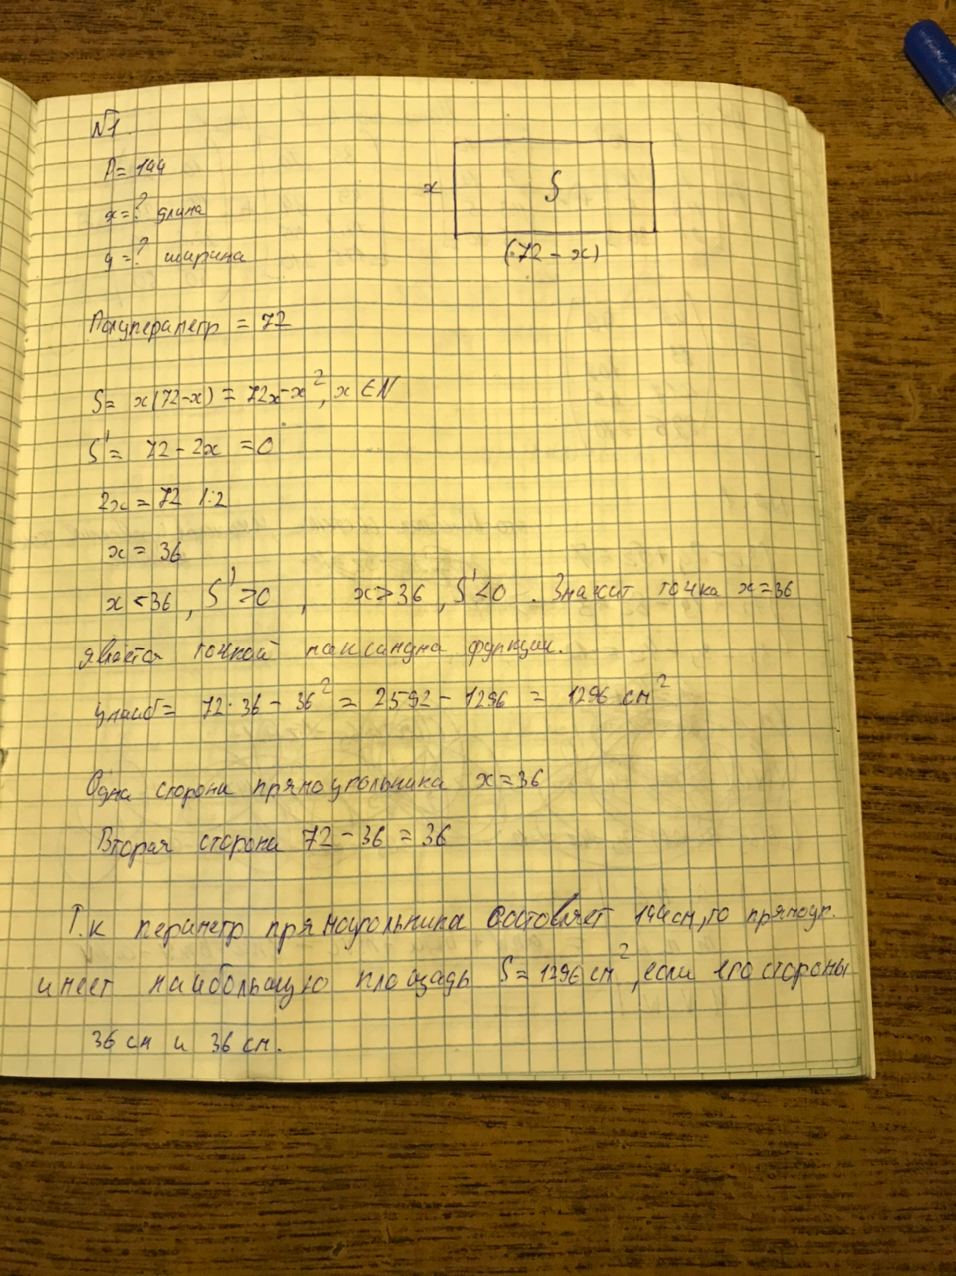 №1.
P= 144
x=? длина
y=? ширина
x
S
(72-x)
Полупераметр = 72
S= x(72-x) = 72x-x², x∈N
S'= 72-2x =0
2x=72 |:2
x=36
x<36, S'>0, x>36, S'<0. Значит точка x=36
явается точкой максимума функции.
yнаиб= 72·36-36² = 2592-1296 = 1296 см²
Одна сторона прямоугольника x=36
Вторая сторона 72-36=36
Т.к периметр прямоугольника состовляет 144см, то прямоуг.
имеет наибольшую площадь S=1296см², если его стороны
36 см и 36 см.